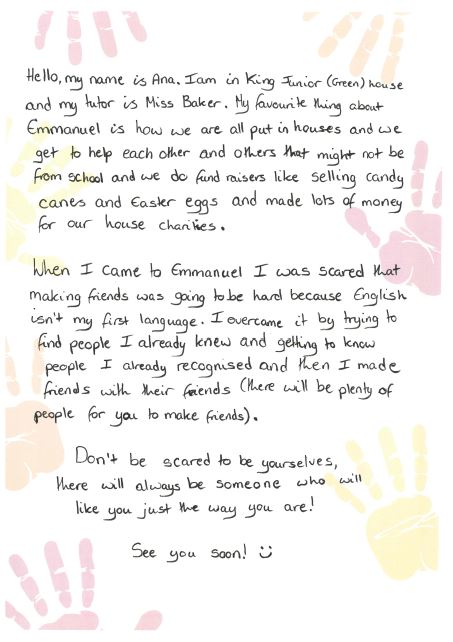 Hello, my name is Ana. I am in King Junior (Green) house
and my tutor is Miss Baker. My favourite thing about
Emmanuel is how we are all put in houses and we
get to help each other and others that might not be
from school and we do fund raisers like selling candy
canes and Easter eggs and made lots of money
for our house charities.
When I came to Emmanuel I was scared that
making friends was going to be hard because English
isn't my first language. I overcame it by trying to
find people I already knew and getting to know
people I already recognised and then I made
friends with their friends (there will be plenty of
people for you to make friends).
Don't be scared to be yourselves,
there will always be someone who will
like you just the way you are!
See you soon! :)